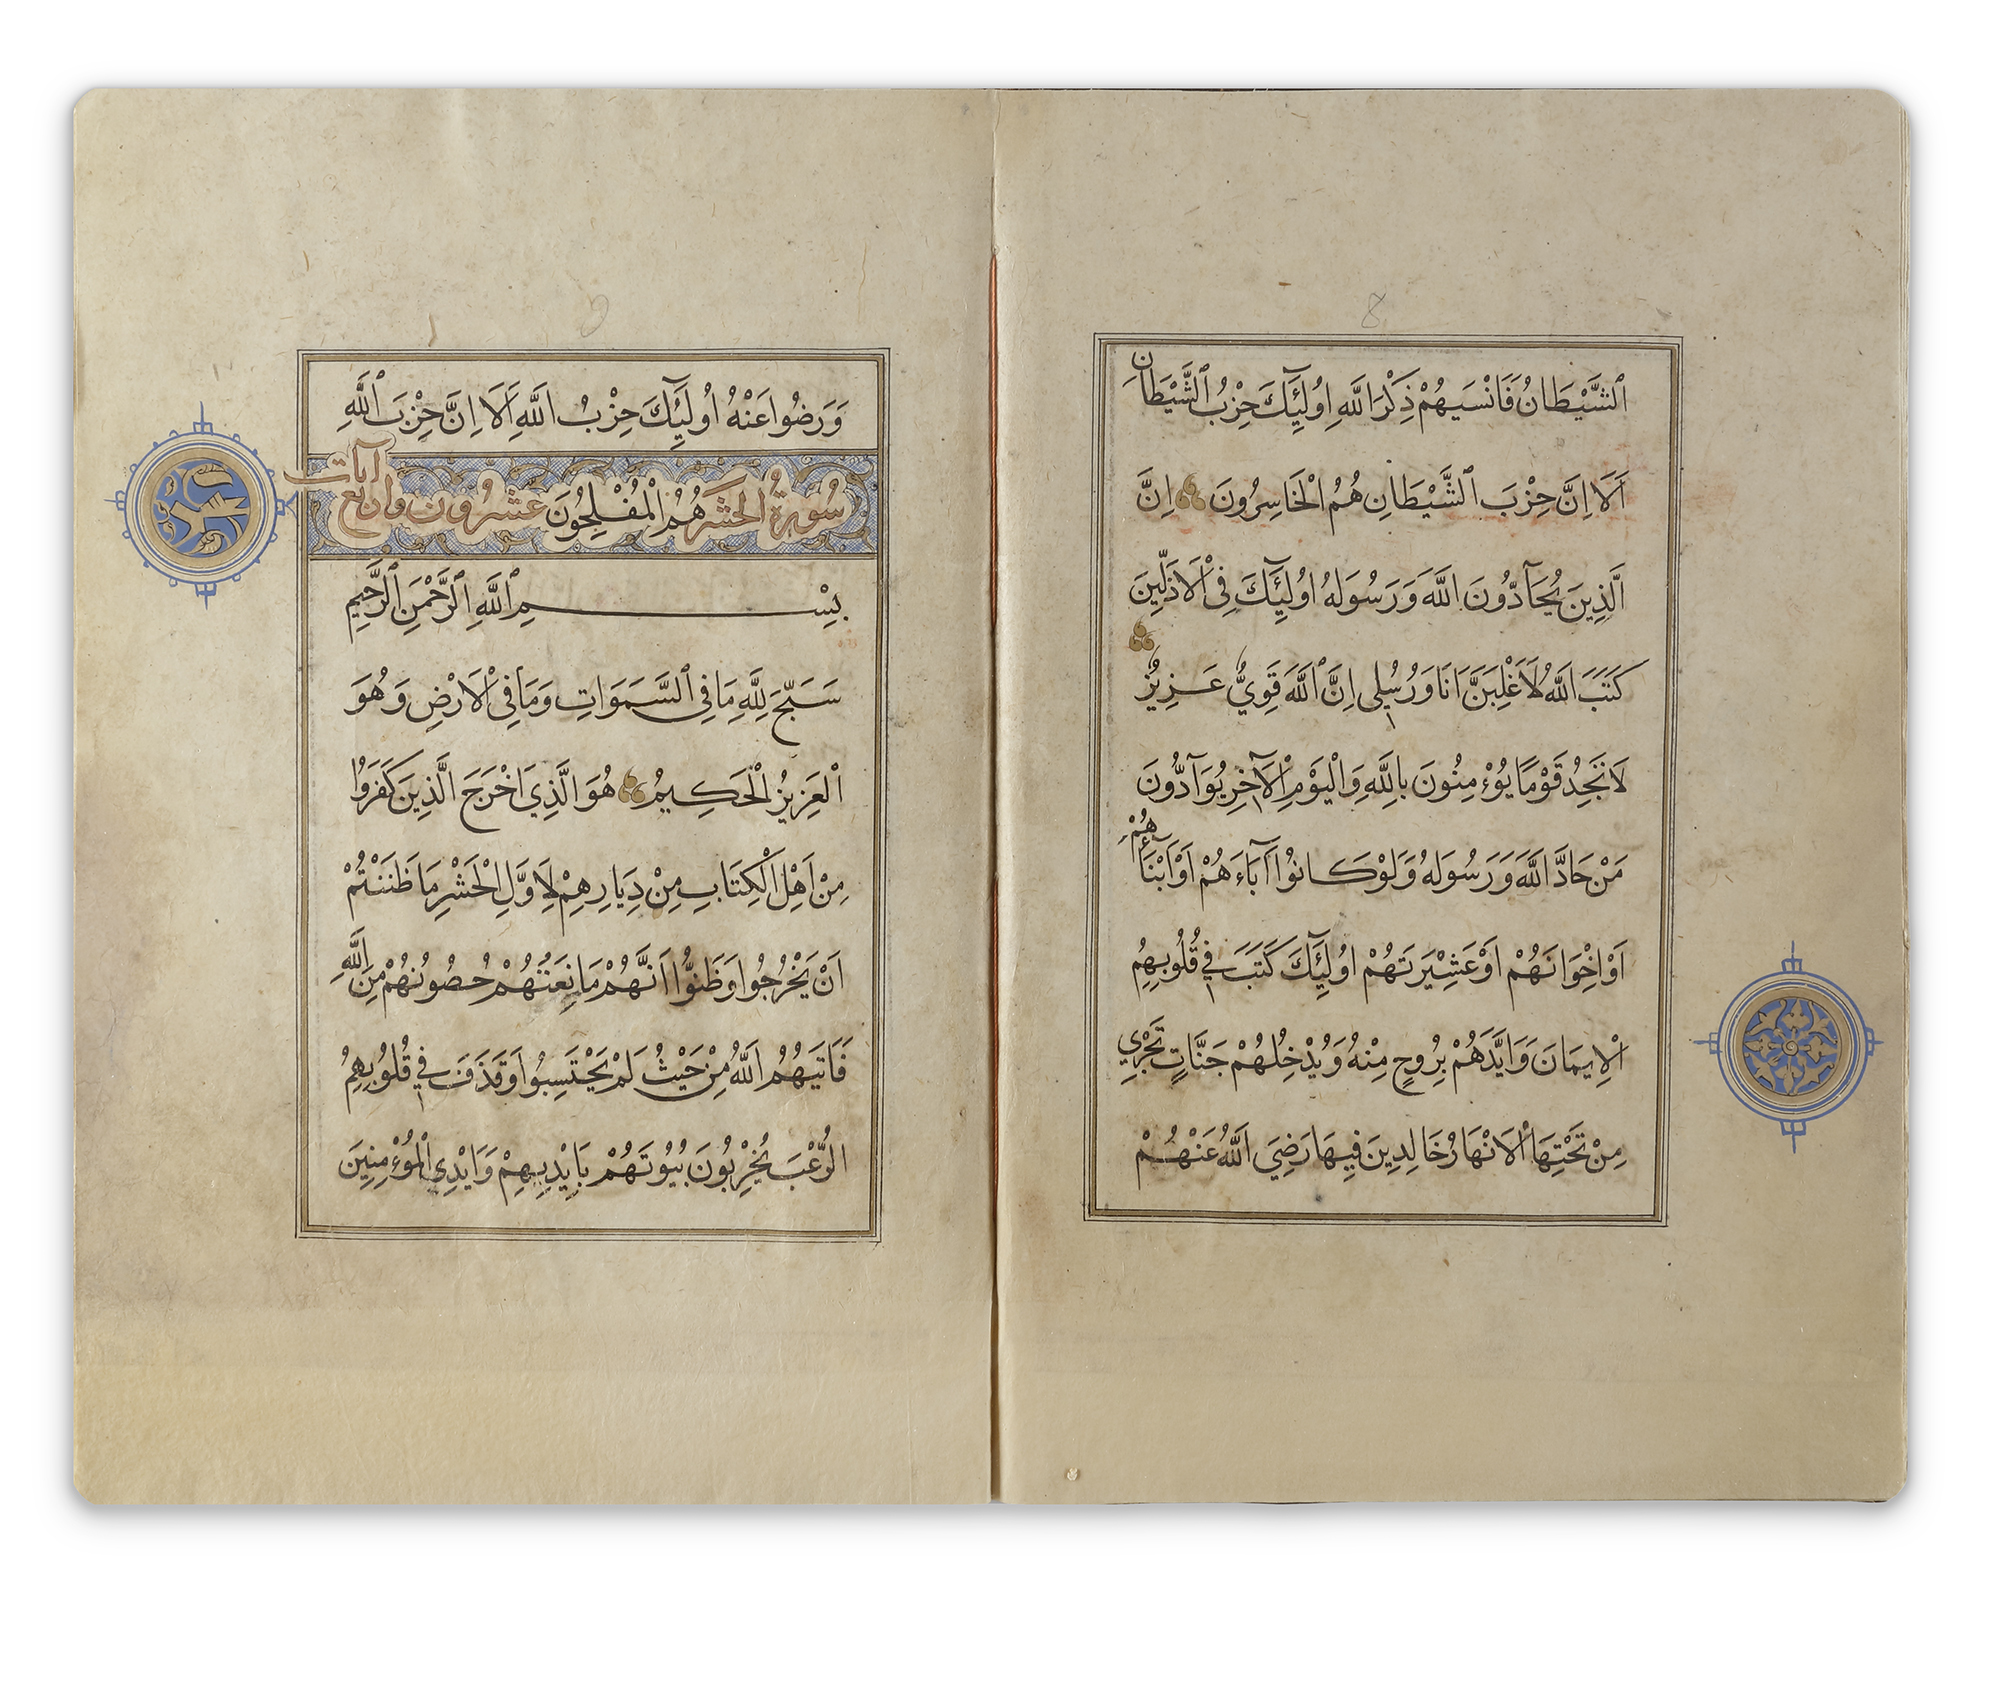 ٱلشَّيْطَانُ فَاَنْسَيهُمْ ذِكْرَ اللَّهِ اُولَٓئِكَ حِزْبُ ٱلشَّيْطَانِ
اَلَا اِنَّ حِزْبَ ٱلشَّيْطَانِ هُمُ الْخَاسِرُونَ اِنَّ
الَّذِينَ يُحَآدُّونَ اللَّهَ وَرَسُولَهُ اُولَٓئِكَ فِى الْاَذَلِّينَ
كَتَبَ اللَّهُ لَاَغْلِبَنَّ اَنَا وَرُسُلِى اِنَّ ٱللَّهَ قَوِىٌّ عَزِيزٌ
لَا تَجِدُ قَوْمًا يُؤْمِنُونَ بِاللَّهِ وَالْيَوْمِ الْآخِرِ يُوَآدُّونَ
مَنْ حَادَّ اللَّهَ وَرَسُولَهُ وَلَوْ كَانُوا آبَاءَهُمْ اَوْ اَبْنَآءَهُمْ
اَوْ اِخْوَانَهُمْ اَوْ عَشِيرَتَهُمْ اُولَٓئِكَ كَتَبَ فِى قُلُوبِهِمُ
الْاِيمَانَ وَاَيَّدَهُمْ بِرُوحٍ مِنْهُ وَيُدْخِلُهُمْ جَنَّاتٍ تَجْرِي
مِنْ تَحْتِهَا الْاَنْهَارُ خَالِدِينَ فِيهَا رَضِيَ اللَّهُ عَنْهُمْ
وَرَضُوا عَنْهُ اُولَٓئِكَ حِزْبُ اللَّهِ اَلَا اِنَّ حِزْبَ ٱللَّهِ
سُورَةُ الْحَشْرِ هُمُ الْمُفْلِحُونَ عشرون واربع آيات
بِسْمِ ٱللَّهِ ٱلرَّحْمَنِ ٱلرَّحِيمِ
سَبَّحَ لِلَّهِ مَا فِى ٱلسَّمَوَاتِ وَمَا فِى الْاَرْضِ وَهُوَ
الْعَزِيزُ الْحَكِيمُ هُوَ الَّذِي اَخْرَجَ الَّذِينَ كَفَرُوا
مِنْ اَهْلِ الْكِتَابِ مِنْ دِيَارِهِمْ لِاَوَّلِ الْحَشْرِ مَا ظَنَنْتُمْ
اَنْ يَخْرُجُوا وَظَنُّوا اَنَّهُمْ مَانِعَتُهُمْ حُصُونُهُمْ مِنَ اللَّهِ
فَاَتَيهُمُ اللَّهُ مِنْ حَيْثُ لَمْ يَحْتَسِبُوا وَقَذَفَ فِى قُلُوبِهِمُ
الرُّعْبَ يُخْرِبُونَ بُيُوتَهُمْ بِاَيْدِيهِمْ وَاَيْدِي الْمُؤْمِنِينَ